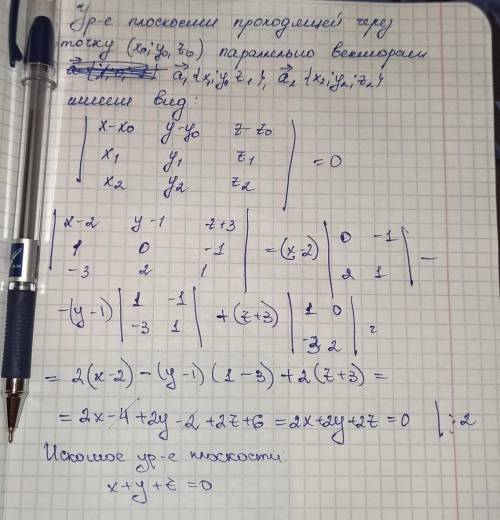 Ур-е плоскости проходящей через
точку (x₀; y₀, z₀) параллельно векторам
a⃗₁ {x₁; y₁ z₁}, a⃗₂ {x₂; y₂; z₂}
имеет вид:
| x-x₀ y-y₀ z-z₀ |
| x₁ y₁ z₁ | = 0
| x₂ y₂ z₂ |
| x-2 y-1 z+3 |
| 1 0 -1 | = (x-2) | 0 -1 | -
| -3 2 1 | | 2 1 |
-(y-1) | 1 -1 | + (z+3) | 1 0 | =
| -3 1 | | -3 2 |
= 2(x-2) - (y-1)(1-3) + 2(z+3) =
= 2x-4+2y-2+2z+6 = 2x+2y+2z = 0 | : 2
Искомое ур-е плоскости:
x+y+z = 0